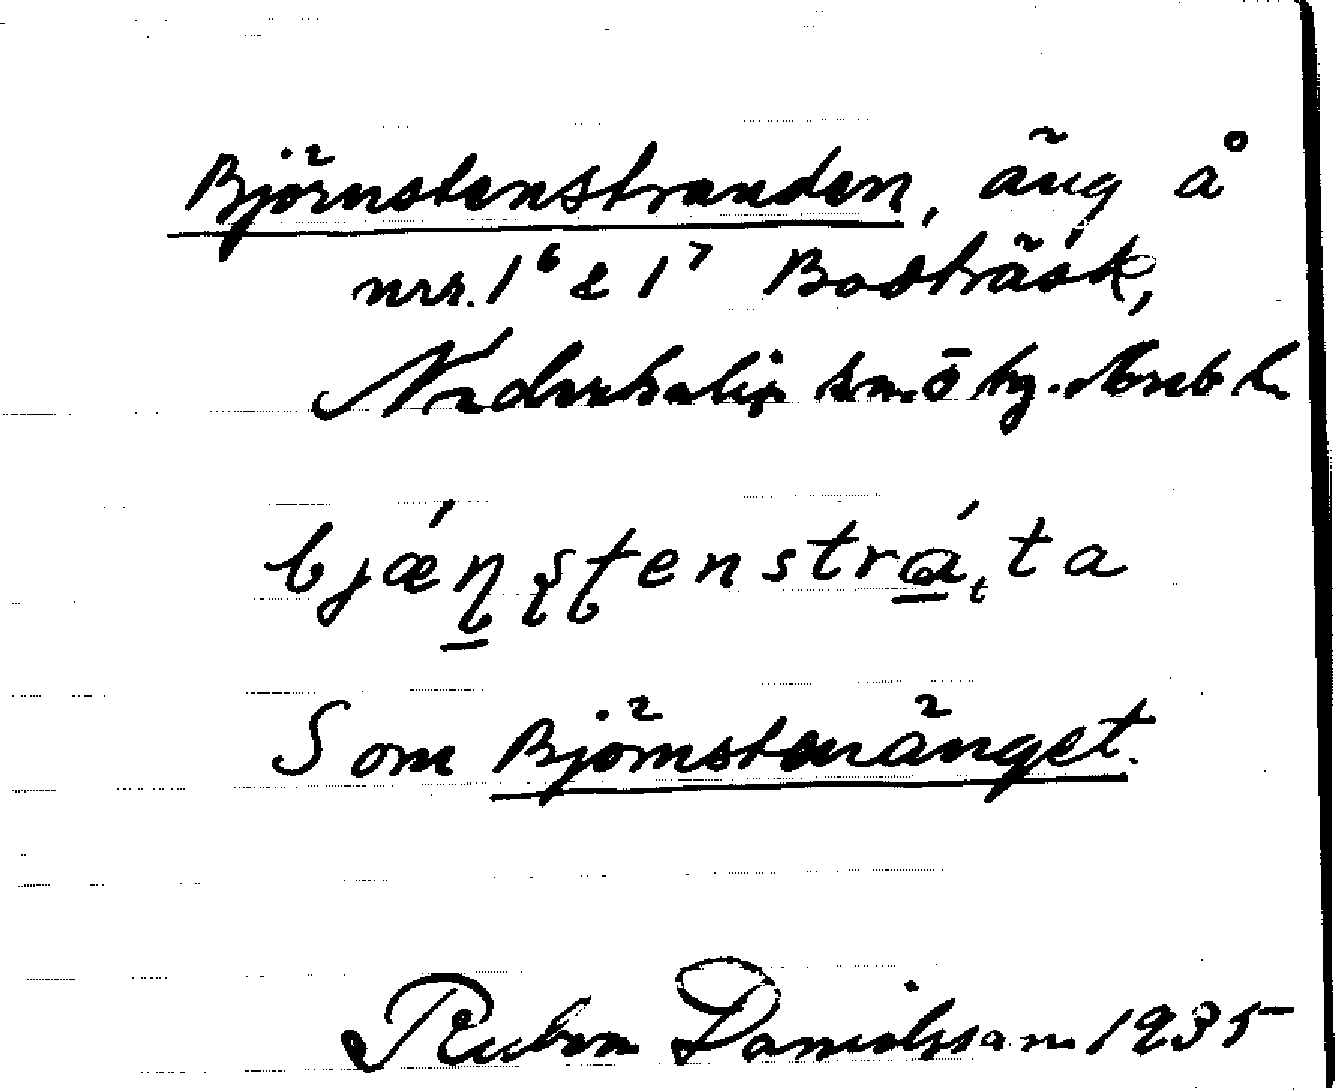 Björnstenstranden, äng å
nrr. 1⁶ & 1⁷ Bodträsk,
Nederkalix sn. ö hg. Nrbt l.
bjǽɳʂʈenstrá̱,ta
Som Björnstenänget.
Ruben Danielsson 1935